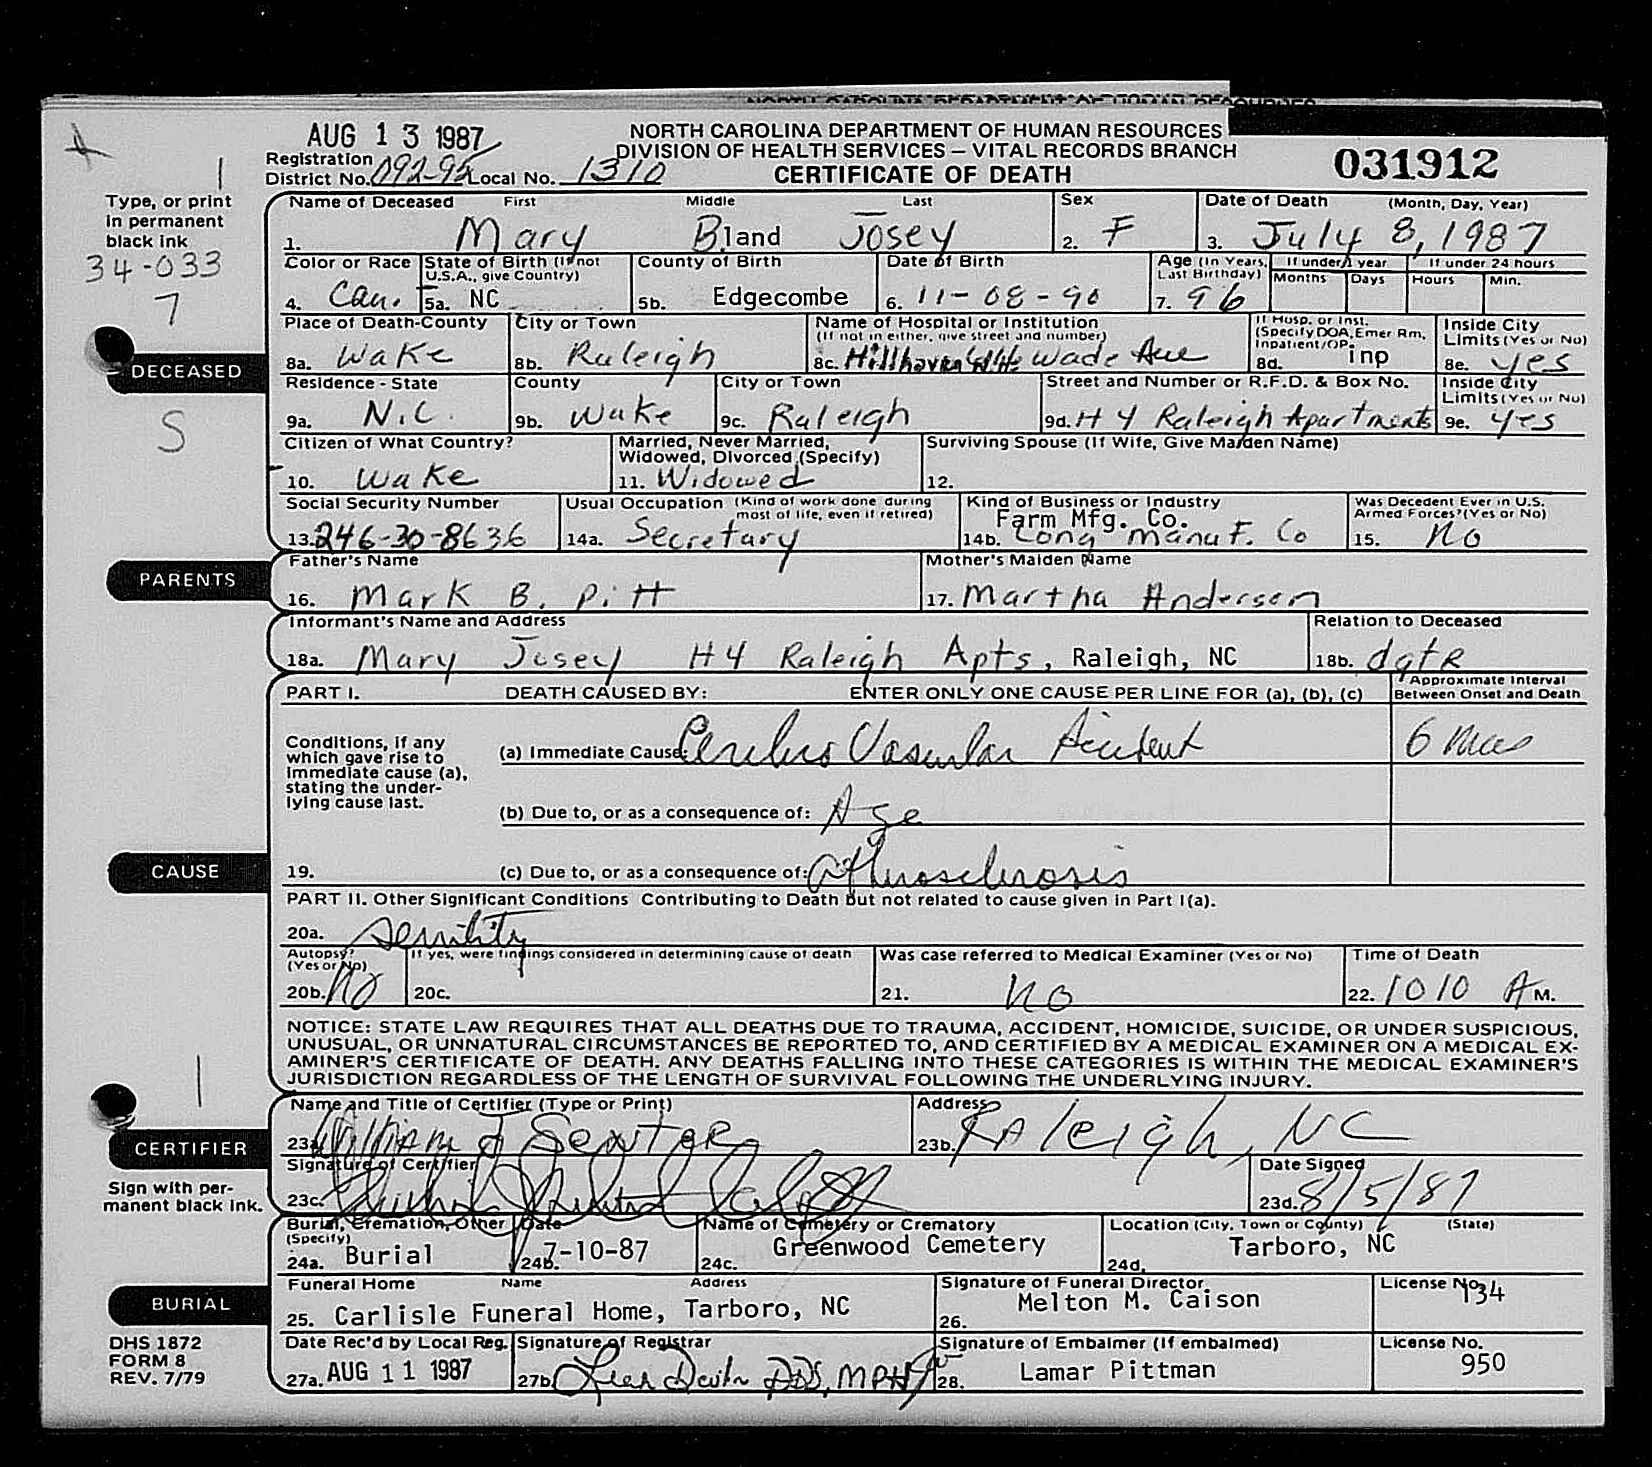 AUG 13 1987
NORTH CAROLINA DEPARTMENT OF HUMAN RESOURCES
DIVISION OF HEALTH SERVICES — VITAL RECORDS BRANCH
CERTIFICATE OF DEATH
031912
Registration District No. 092-92 Local No. 1310
Type, or print in permanent black ink
34-033
7
Name of Deceased First Middle Last
1. Mary Bland Josey
Sex
2. F
Date of Death (Month, Day, Year)
3. July 8, 1987
Color or Race
4. Cau.
State of Birth (If not U.S.A., give Country)
5a. NC
County of Birth
5b. Edgecombe
Date of Birth
6. 11-08-90
Age (In Years, Last Birthday)
7. 96
If under 1 year Months Days
If under 24 hours Hours Min.
DECEASED
Place of Death-County
8a. Wake
City or Town
8b. Raleigh
Name of Hospital or Institution (If not in either, give street and number)
8c. Hillhaven Wade Ave
If Hosp. or Inst. (Specify DOA, Emer Rm, Inpatient/OP.
8d. inp
Inside City Limits (Yes or No)
8e. yes
Residence - State
9a. N.C.
County
9b. Wake
City or Town
9c. Raleigh
Street and Number or R.F.D. & Box No.
9d. H4 Raleigh Apartments
Inside City Limits (Yes or No)
9e. yes
S
Citizen of What Country?
10. Wake
Married, Never Married, Widowed, Divorced (Specify)
11. Widowed
Surviving Spouse (If Wife, Give Maiden Name)
12.
Social Security Number
13. 246-30-8636
Usual Occupation (Kind of work done during most of life, even if retired)
14a. Secretary
Kind of Business or Industry
Farm Mfg. Co.
14b. Long Manuf. Co
Was Decedent Ever in U.S. Armed Forces? (Yes or No)
15. No
PARENTS
Father's Name
16. Mark B. Pitt
Mother's Maiden Name
17. Martha Anderson
Informant's Name and Address
18a. Mary Josey H4 Raleigh Apts, Raleigh, NC
Relation to Deceased
18b. dgtr
PART I. DEATH CAUSED BY: ENTER ONLY ONE CAUSE PER LINE FOR (a), (b), (c)
Approximate Interval Between Onset and Death
Conditions, if any which gave rise to immediate cause (a), stating the underlying cause last.
(a) Immediate Cause: Cerebro Vascular Accident
6
(b) Due to, or as a consequence of: Age
CAUSE
19.
(c) Due to, or as a consequence of: atherosclerosis
PART II. Other Significant Conditions Contributing to Death but not related to cause given in Part I(a).
20a. Senility
Autopsy? (Yes or No)
20b. No
If yes, were findings considered in determining cause of death
20c.
Was case referred to Medical Examiner (Yes or No)
21. No
Time of Death
22. 1010 A M.
NOTICE: STATE LAW REQUIRES THAT ALL DEATHS DUE TO TRAUMA, ACCIDENT, HOMICIDE, SUICIDE, OR UNDER SUSPICIOUS,
UNUSUAL, OR UNNATURAL CIRCUMSTANCES BE REPORTED TO, AND CERTIFIED BY A MEDICAL EXAMINER ON A MEDICAL EX-
AMINER'S CERTIFICATE OF DEATH. ANY DEATHS FALLING INTO THESE CATEGORIES IS WITHIN THE MEDICAL EXAMINER'S
JURISDICTION REGARDLESS OF THE LENGTH OF SURVIVAL FOLLOWING THE UNDERLYING INJURY.
CERTIFIER
Sign with permanent black ink.
Name and Title of Certifier (Type or Print)
23a. William J Senter
Address
23b. Raleigh, NC
Signature of Certifier
23c.
Date Signed
23d. 8/5/87
Burial, Cremation, Other (Specify)
24a. Burial
Date
24b. 7-10-87
Name of Cemetery or Crematory
24c. Greenwood Cemetery
Location (City, Town or County) (State)
24d. Tarboro, NC
BURIAL
Funeral Home Name Address
25. Carlisle Funeral Home, Tarboro, NC
Signature of Funeral Director
26. Melton M. Caison
License No.
934
DHS 1872
FORM 8
REV. 7/79
Date Rec'd by Local Reg.
27a. AUG 11 1987
Signature of Registrar
27b. DDS, MPH
Signature of Embalmer (If embalmed)
28. Lamar Pittman
License No.
950